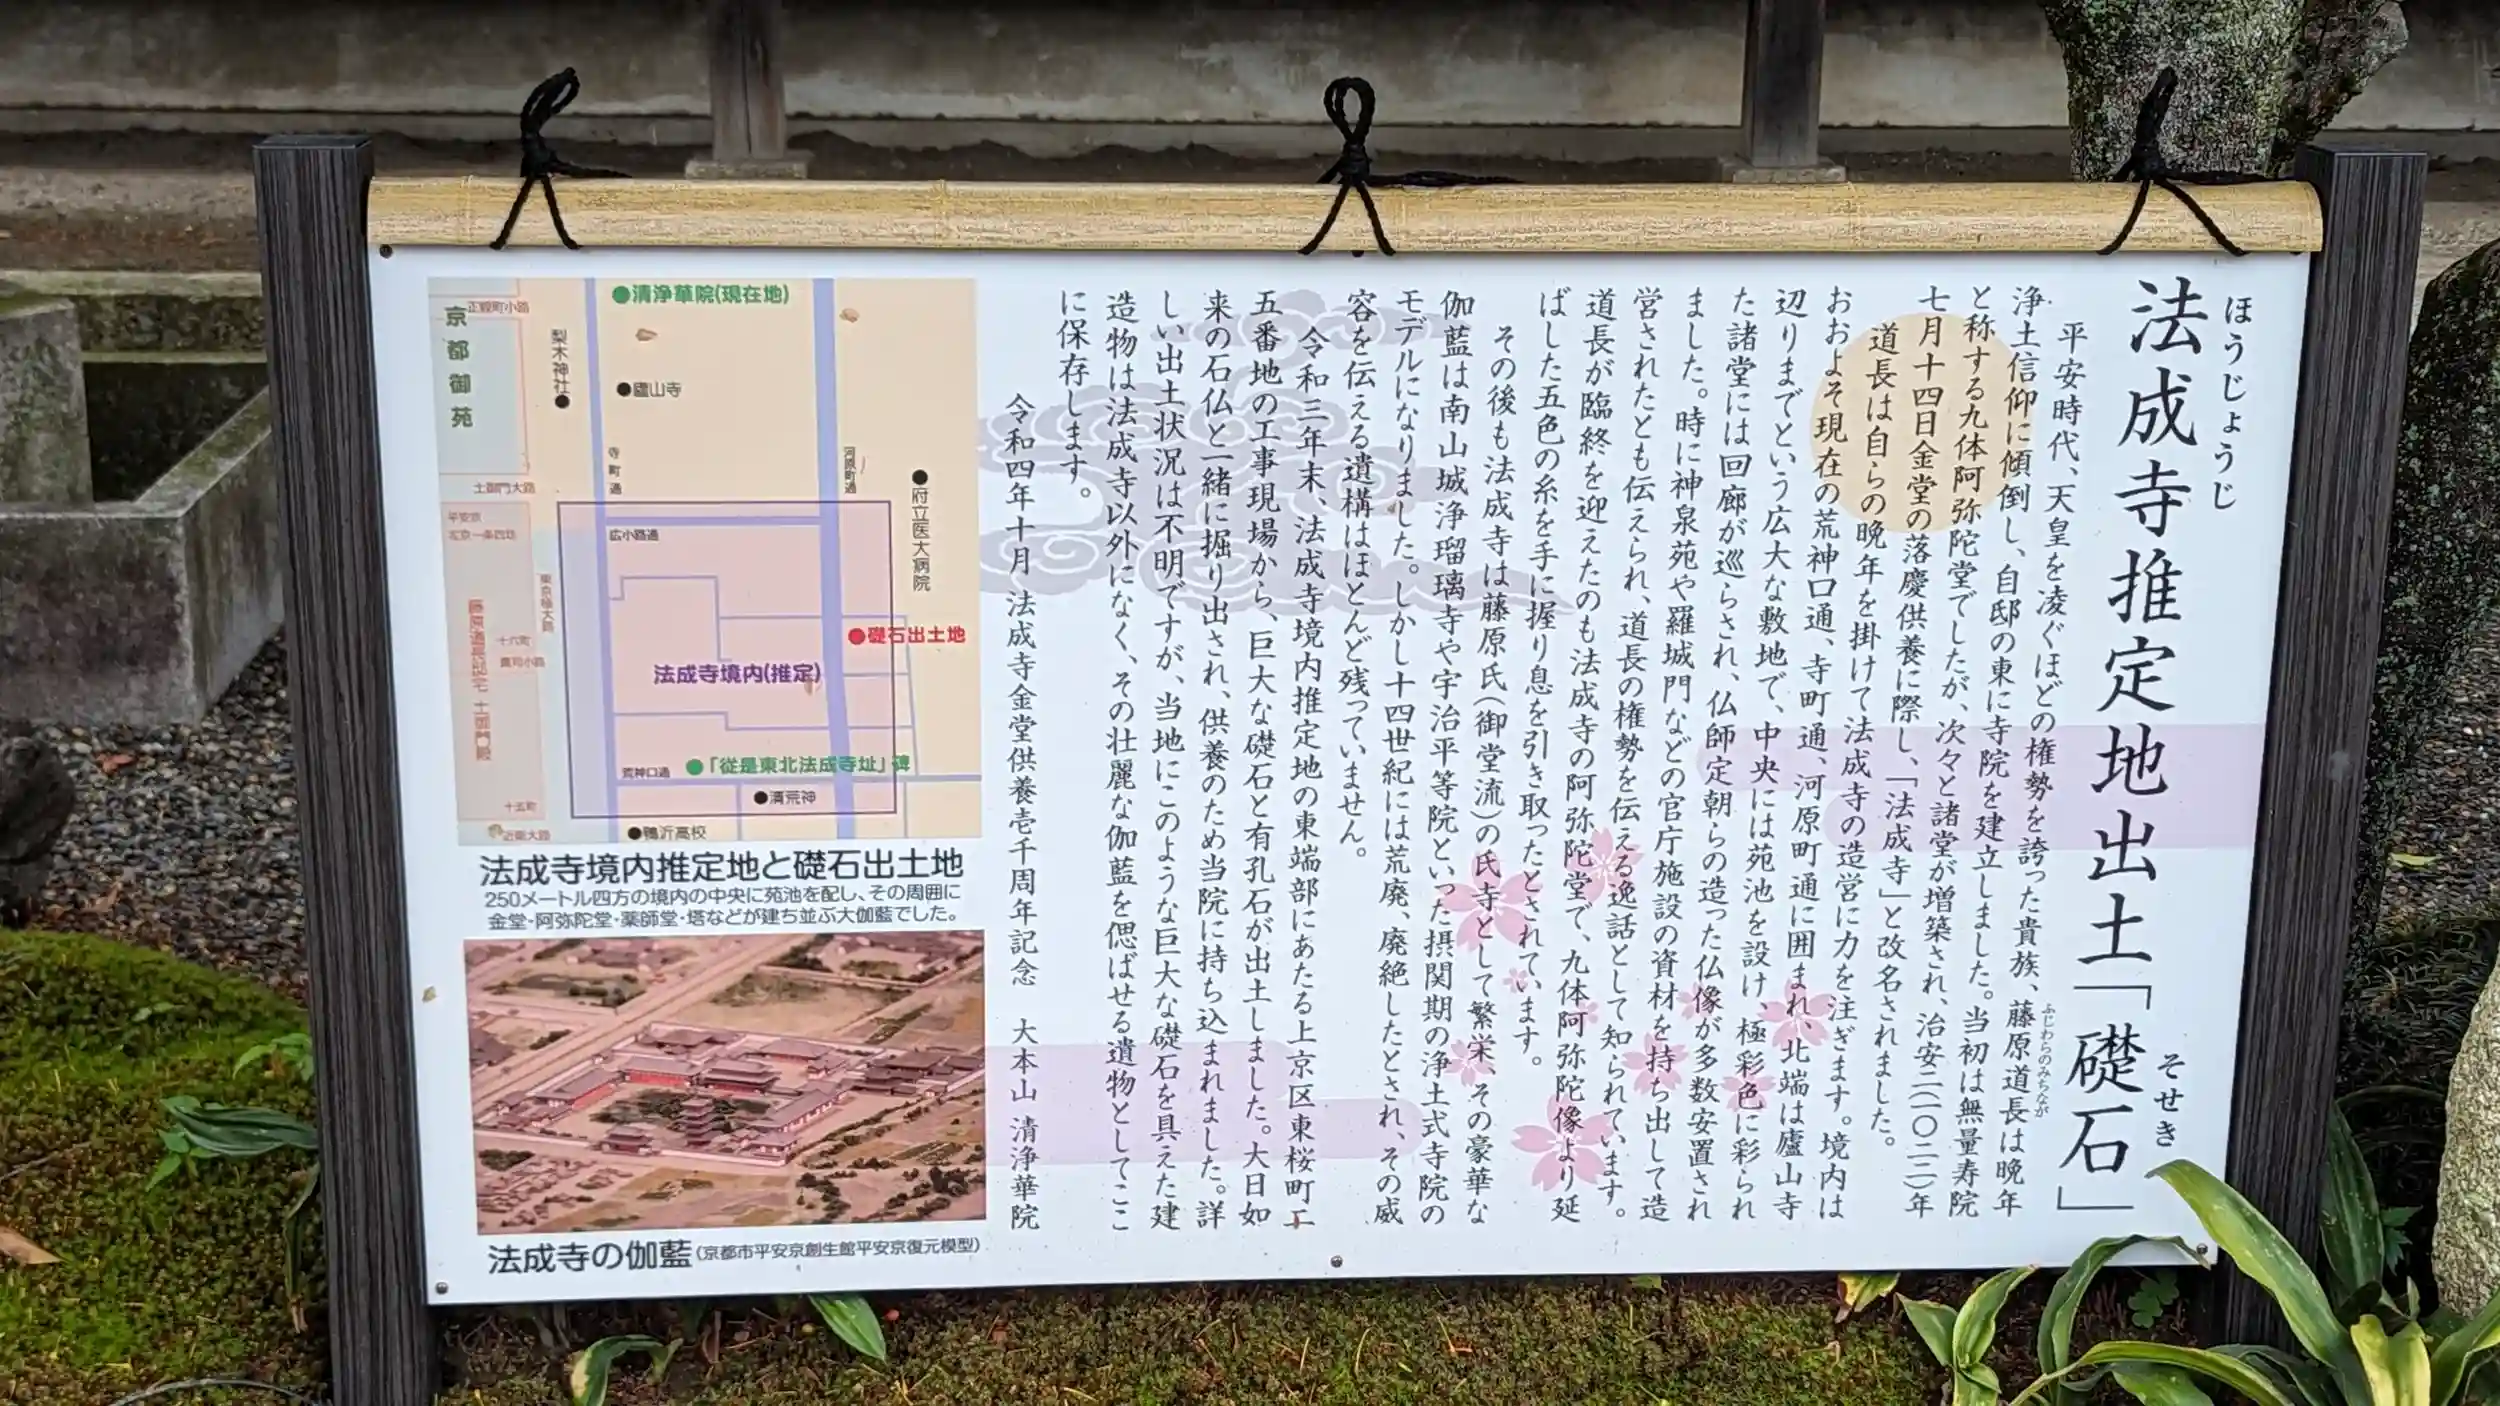 法成寺推定地出土「礎石」
ほうじょうじ
そせき
平安時代、天皇を凌ぐほどの権勢を誇った貴族、藤原道長は晩年
ふじわらのみちなが
浄土信仰に傾倒し、自邸の東に寺院を建立しました。当初は無量寿院
と称する九体阿弥陀堂でしたが、次々と諸堂が増築され、治安二(一〇二二)年
七月十四日金堂の落慶供養に際し、「法成寺」と改名されました。
道長は自らの晩年を掛けて法成寺の造営に力を注ぎます。境内は
おおよそ現在の荒神口通、寺町通、河原町通に囲まれ、北端は廬山寺
辺りまでという広大な敷地で、中央には苑池を設け、極彩色に彩られ
た諸堂には回廊が巡らされ、仏師定朝らの造った仏像が多数安置され
ました。時に神泉苑や羅城門などの官庁施設の資材を持ち出して造
営されたとも伝えられ、道長の権勢を伝える逸話として知られています。
道長が臨終を迎えたのも法成寺の阿弥陀堂で、九体阿弥陀像より延
ばした五色の糸を手に握り息を引き取ったとされています。
その後も法成寺は藤原氏(御堂流)の氏寺として繁栄、その豪華な
伽藍は南山城浄瑠璃寺や宇治平等院といった摂関期の浄土式寺院の
モデルになりました。しかし十四世紀には荒廃、廃絶したとされ、その威
容を伝える遺構はほとんど残っていません。
令和三年末、法成寺境内推定地の東端部にあたる上京区東桜町工
五番地の工事現場から、巨大な礎石と有孔石が出土しました。大日如
来の石仏と一緒に掘り出され、供養のため当院に持ち込まれました。詳
しい出土状況は不明ですが、当地にこのような巨大な礎石を具えた建
造物は法成寺以外になく、その壮麗な伽藍を偲ばせる遺物としてここ
に保存します。
令和四年十月 法成寺金堂供養壱千周年記念 大本山 清浄華院
京都御苑
正親町小路
●清浄華院(現在地)
梨木神社●
●廬山寺
寺町通
河原町通
●府立医大病院
土御門大路
平安京
左京一条四坊
広小路通
東京極大路
藤原道長邸宅 土御門殿
十六町
鷹司小路
●礎石出土地
法成寺境内(推定)
●「従是東北法成寺址」碑
荒神口通
●清荒神
十五町
近衛大路
●鴨沂高校
法成寺境内推定地と礎石出土地
250メートル四方の境内の中央に苑池を配し、その周囲に
金堂・阿弥陀堂・薬師堂・塔などが建ち並ぶ大伽藍でした。
法成寺の伽藍(京都市平安京創生館平安京復元模型)